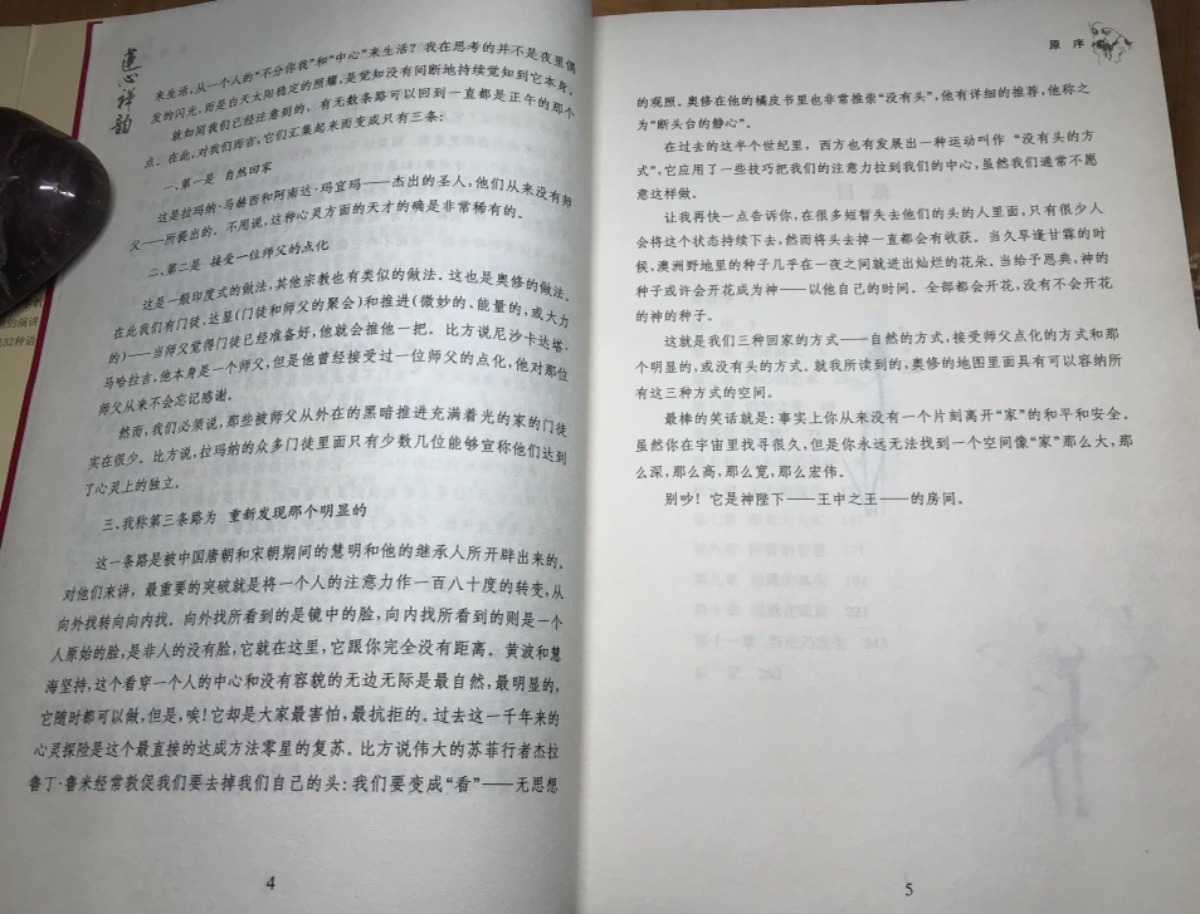 莲心祥韵
来生活,从一个人的“不分你我”和“中心”来生活?我在思考的并不是夜里偶
发的闪光,而是白天太阳稳定的照耀,是觉知没有间断地持续觉知到它本身。
就如同我们已经注意到的,有无数条路可以回到一直都是正午的那个
点。在此,对我们而言,它们汇集起来而变成只有三条:
一、第一是 自然回家
这是拉玛纳·马赫西和阿南达·玛宜玛——杰出的圣人,他们从来没有师
父——所提出的。不用说,这种心灵方面的天才的确是非常稀有的。
二、第二是 接受一位师父的点化
这是一般印度式的做法,其他宗教也有类似的做法。这也是奥修的做法。
在此我们有门徒、达显(门徒和师父的聚会)和推进(微妙的、能量的,或大力
的)——当师父觉得门徒已经准备好,他就会推他一把。比方说尼沙卡达塔·
马哈拉吉,他本身是一个师父,但是他曾经接受过一位师父的点化,他对那位
师父从来不会忘记感谢。
然而,我们必须说,那些被师父从外在的黑暗推进充满着光的家的门徒
实在很少。比方说,拉玛纳的众多门徒里面只有少数几位能够宣称他们达到
了心灵上的独立。
三、我称第三条路为 重新发现那个明显的
这一条路是被中国唐朝和宋朝期间的慧明和他的继承人所开辟出来的,
对他们来讲,最重要的突破就是将一个人的注意力作一百八十度的转变,从
向外找转向向内找。向外找所看到的是镜中的脸,向内找所看到的则是一个
人原始的脸,是非人的没有脸,它就在这里,它跟你完全没有距离。黄波和慧
海坚持,这个看穿一个人的中心和没有容貌的无边无际是最自然,最明显的,
它随时都可以做,但是,唉!它却是大家最害怕,最抗拒的。过去这一千年来的
心灵探险是这个最直接的达成方法零星的复苏。比方说伟大的苏菲行者杰拉
鲁丁·鲁米经常敦促我们要去掉我们自己的头:我们要变成“看”——无思想
4
的演讲
32种语
原 序
的观照。奥修在他的橘皮书里也非常推崇“没有头”,他有详细的推荐,他称之
为“断头台的静心”。
在过去的这半个世纪里,西方也有发展出一种运动叫作“没有头的方
式”,它应用了一些技巧把我们的注意力拉到我们的中心,虽然我们通常不愿
意这样做。
让我再快一点告诉你,在很多短暂失去他们的头的人里面,只有很少人
会将这个状态持续下去,然而将头去掉一直都会有收获。当久旱逢甘霖的时
候,澳洲野地里的种子几乎在一夜之间就迸出灿烂的花朵。当给予恩典,神的
种子或许会开花成为神——以他自己的时间。全部都会开花,没有不会开花
的神的种子。
这就是我们三种回家的方式——自然的方式,接受师父点化的方式和那
个明显的,或没有头的方式。就我所读到的,奥修的地图里面具有可以容纳所
有这三种方式的空间。
最棒的笑话就是:事实上你从来没有一个片刻离开“家”的和平和安全。
虽然你在宇宙里找寻很久,但是你永远无法找到一个空间像“家”那么大,那
么深,那么高,那么宽,那么宏伟。
别吵!它是神陛下——王中之王——的房间。
5